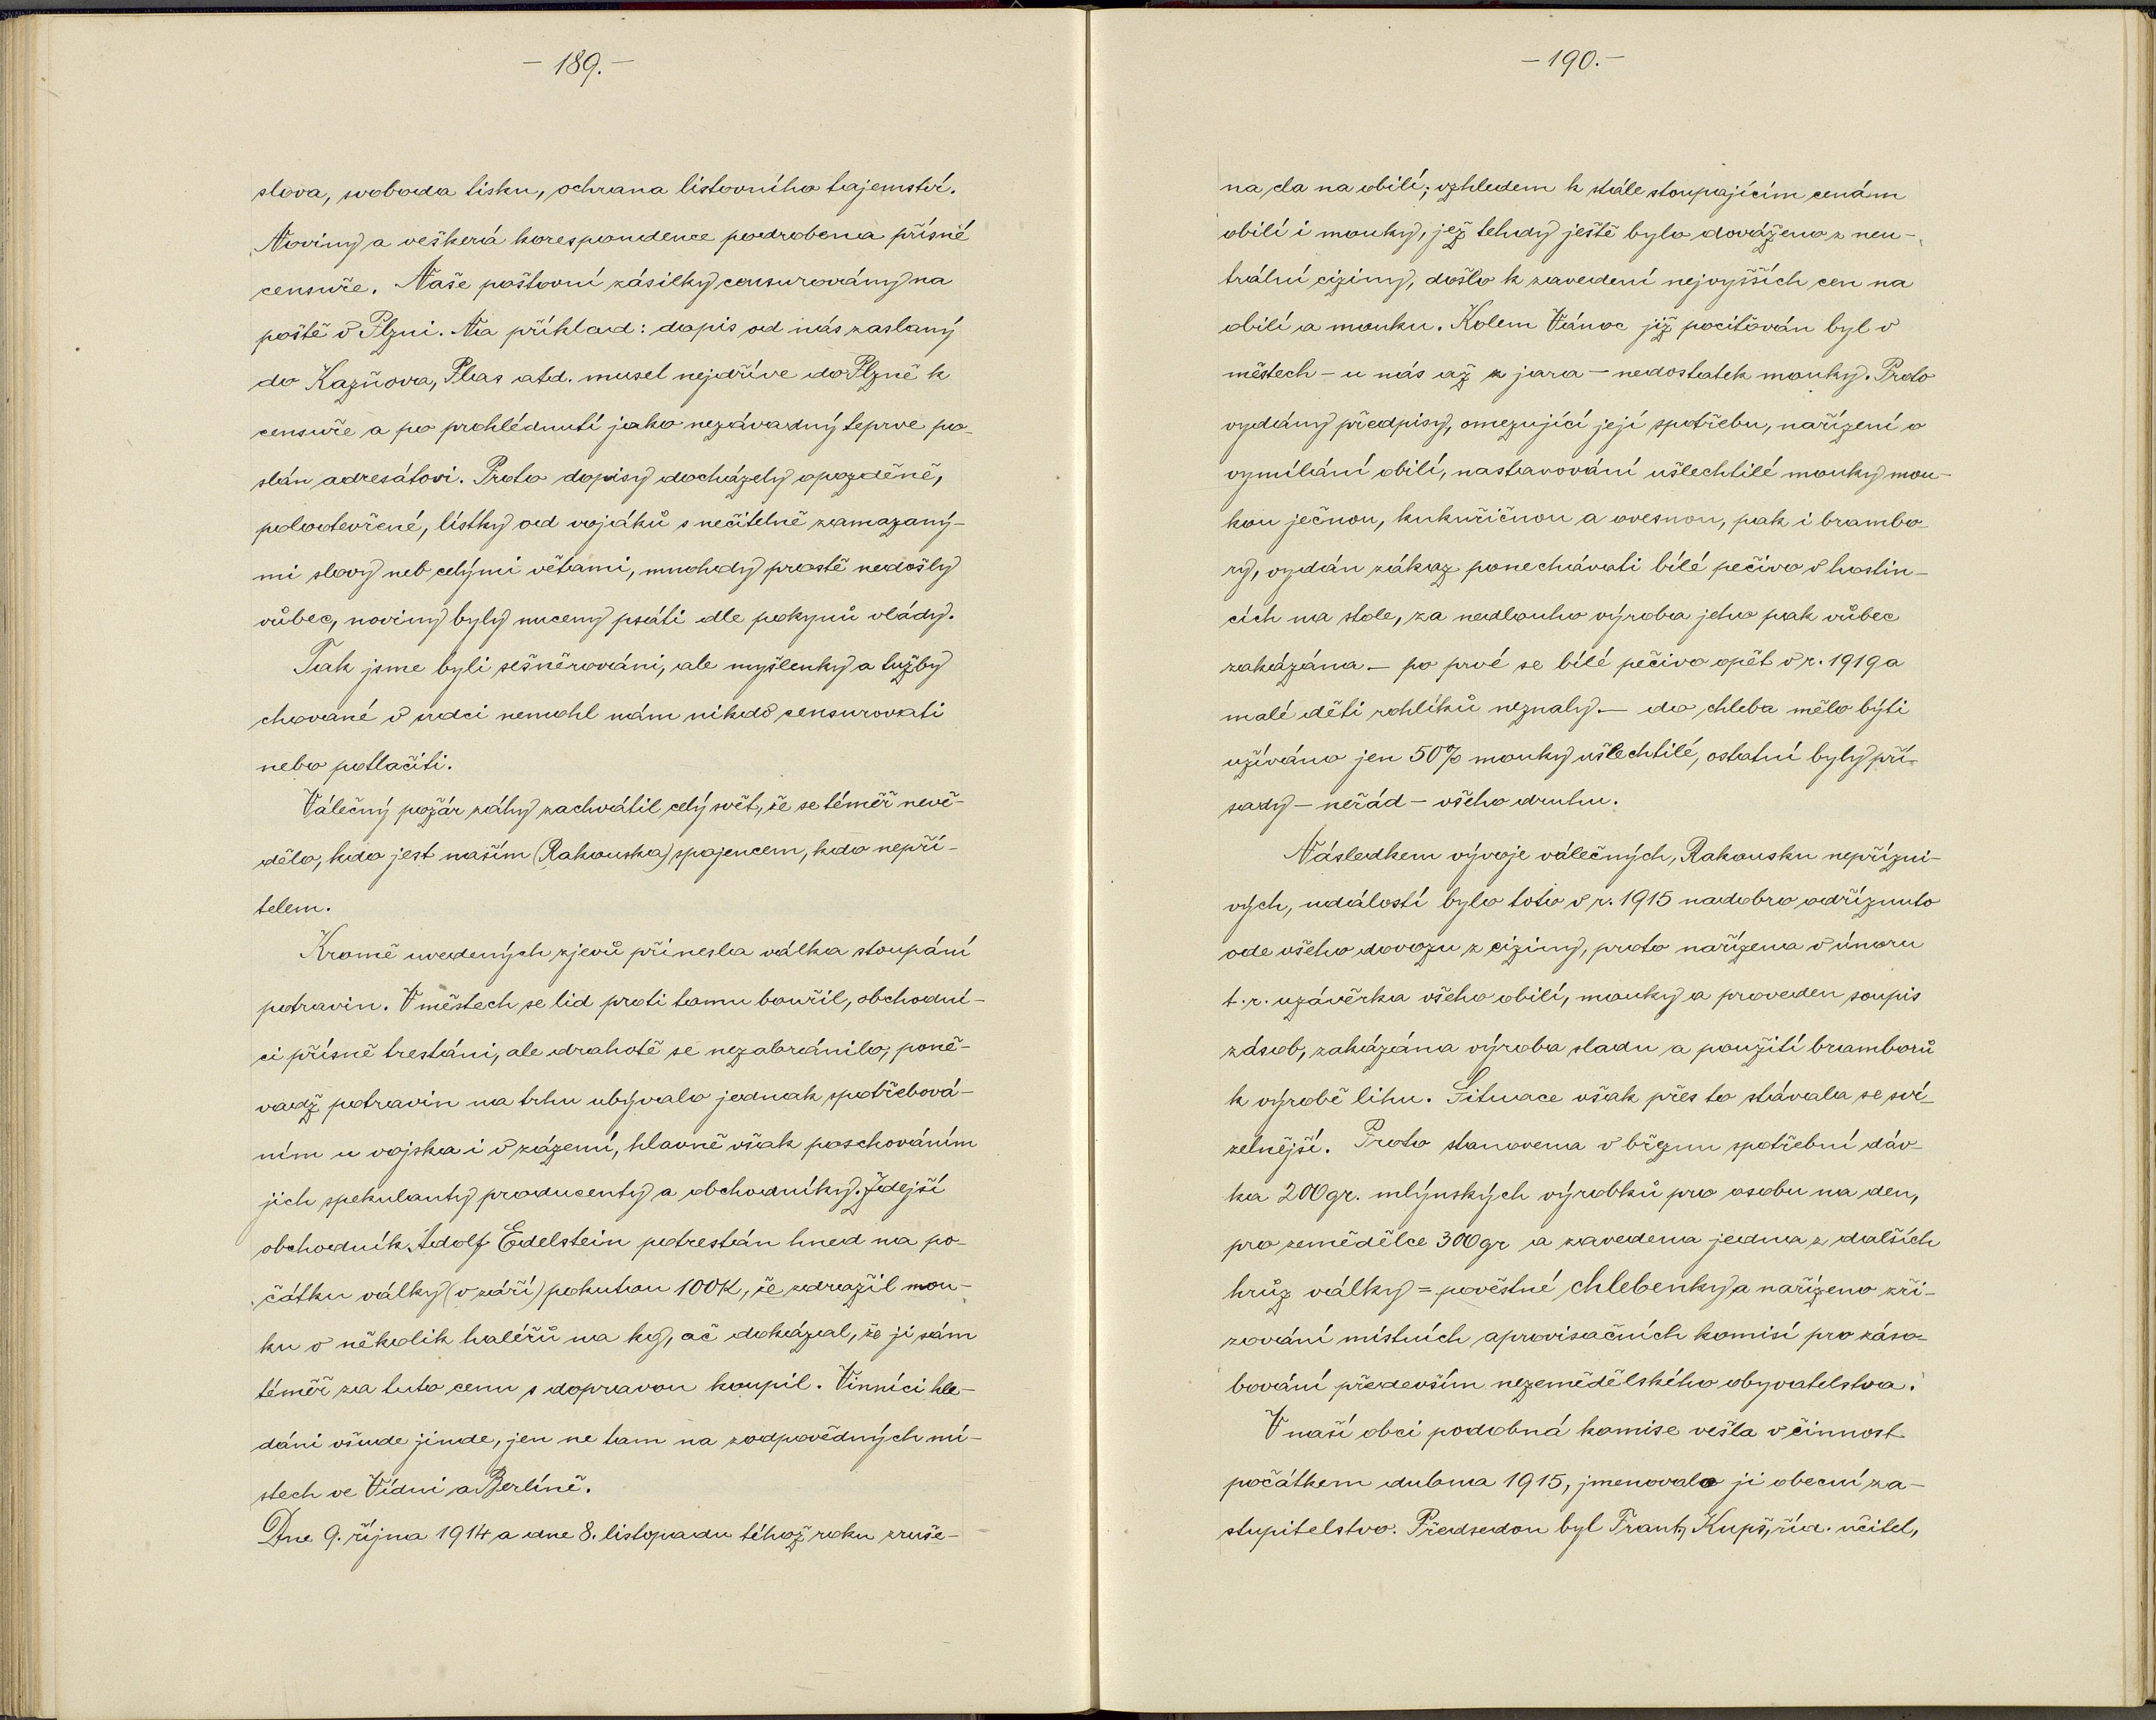 – 189. –
slova, svoboda tisku, ochrana listovního tajemství.
Noviny a veškerá korespondence podrobena přísné
censuře. Naše poštovní zásilky censurovány na
poště v Plzni. Na příklad: dopis od nás zaslaný
do Kazňova, Plas atd. musel nejdříve do Plzně k
censuře a po prohlédnutí jako nezávadný teprve po-
slán adresátovi. Proto dopisy docházely opozděně,
polootevřené, lístky od vojáků s nečitelně zamazaný-
mi slovy neb celými větami, mnohdy prostě nedošly
vůbec, noviny byly nuceny psáti dle pokynů vlády.
Tak jsme byli sešněrováni, ale myšlenky a tužby
chované v srdci nemohl nám nikdo censurovati
nebo potlačiti.
Válečný požár záhy zachvátil celý svět, že se téměř nevě-
dělo, kdo jest naším (Rakouska) spojencem, kdo nepří-
telem.
Kromě uvedených zjevů přinesla válka stoupání
potravin. V městech se lid proti tomu bouřil, obchodní-
ci přísně trestáni, ale drahotě se nezabránilo, poně-
vadž potravin na trhu ubývalo jednak spotřebová-
ním u vojska i v zázemí, hlavně však poschováním
jich spekulanty producenty a obchodníky. Zdejší
obchodník Adolf Edelstein potrestán hned na po-
čátku války (v září) pokutou 100K, že zdražil mou-
ku o několik haléřů na kg, ač dokázal, že ji sám
téměř za tuto cenu s dopravou koupil. Vinníci hle-
dáni všude jinde, jen ne tam na zodpovědných mí-
stech ve Vídni a Berlíně.
Dne 9. října 1914 a dne 8. listopadu téhož roku zruše-
– 190. –
na cla na obilí; vzhledem k stále stoupajícím cenám
obilí i mouky, jež tehdy ještě bylo dováženo z neu-
trální ciziny, došlo k zavedení nejvyšších cen na
obilí a mouku. Kolem Vánoc již pociťován byl v
městech – u nás až z jara – nedostatek mouky. Proto
vydány předpisy, omezující její spotřebu, nařízení o
vymílání obilí, nastavování ušlechtilé mouky mou-
kou ječnou, kukuřičnou a ovesnou, pak i brambo-
ry, vydán zákaz ponechávati bílé pečivo v hostin-
cích na stole, za nedlouho výroba jeho pak vůbec
zakázána – po prvé se bílé pečivo opět v r. 1919 a
malé děti rohlíků neznaly – do chleba mělo býti
užíváno jen 50% mouky ušlechtilé, ostatní byly pří-
sady – neřád – všeho druhu.
Následkem vývoje válečných, Rakousku nepřízni-
vých, událostí bylo toto v r. 1915 nadobro odříznuto
ode všeho dovozu z ciziny, proto nařízena v únoru
t. r. uzávěrka všeho obilí, mouky a proveden soupis
zásob, zakázána výroba sladu a použití bramborů
k výrobě lihu. Situace však přes to stávala se sví-
zelnější. Proto stanovena v březnu spotřební dáv-
ka 200gr. mlýnských výrobků pro osobu na den,
pro zemědělce 300gr a zavedena jedna z dalších
hrůz války = pověstné chlebenky a nařízeno zři-
zování místních aprovisačních komisí pro záso-
bování především nezemědělského obyvatelstva.
V naší obci podobná komise vešla v činnost
počátkem dubna 1915, jmenovalo ji obecní za-
stupitelstvo. Předsedou byl Frant. Kupš, říd. učitel,